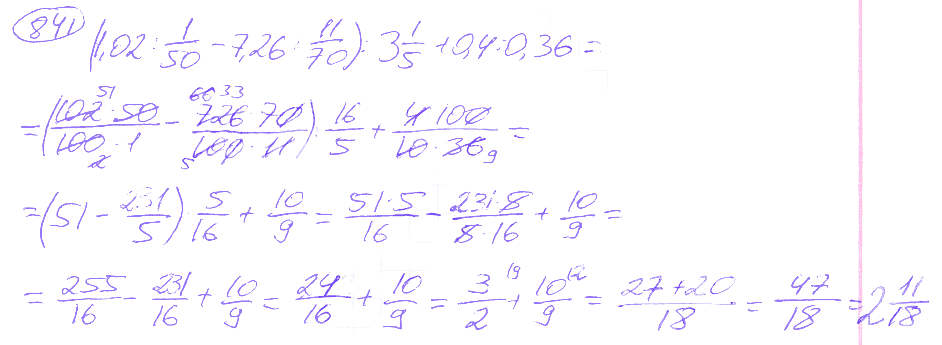 841
(1,02 : 1/50 - 7,26 : 11/70) : 3 1/5 + 0,4 : 0,36 =
= (102 · 50 / 100 · 1 - 726 · 70 / 100 · 11) : 16/5 + 4 · 100 / 10 · 36 =
= (51 - 231/5) · 5/16 + 10/9 = 51 · 5 / 16 - 231 · 5 / 5 · 16 + 10/9 =
= 255/16 - 231/16 + 10/9 = 24/16 + 10/9 = 3/2 + 10/9 = 27 + 20 / 18 = 47/18 = 2 11/18